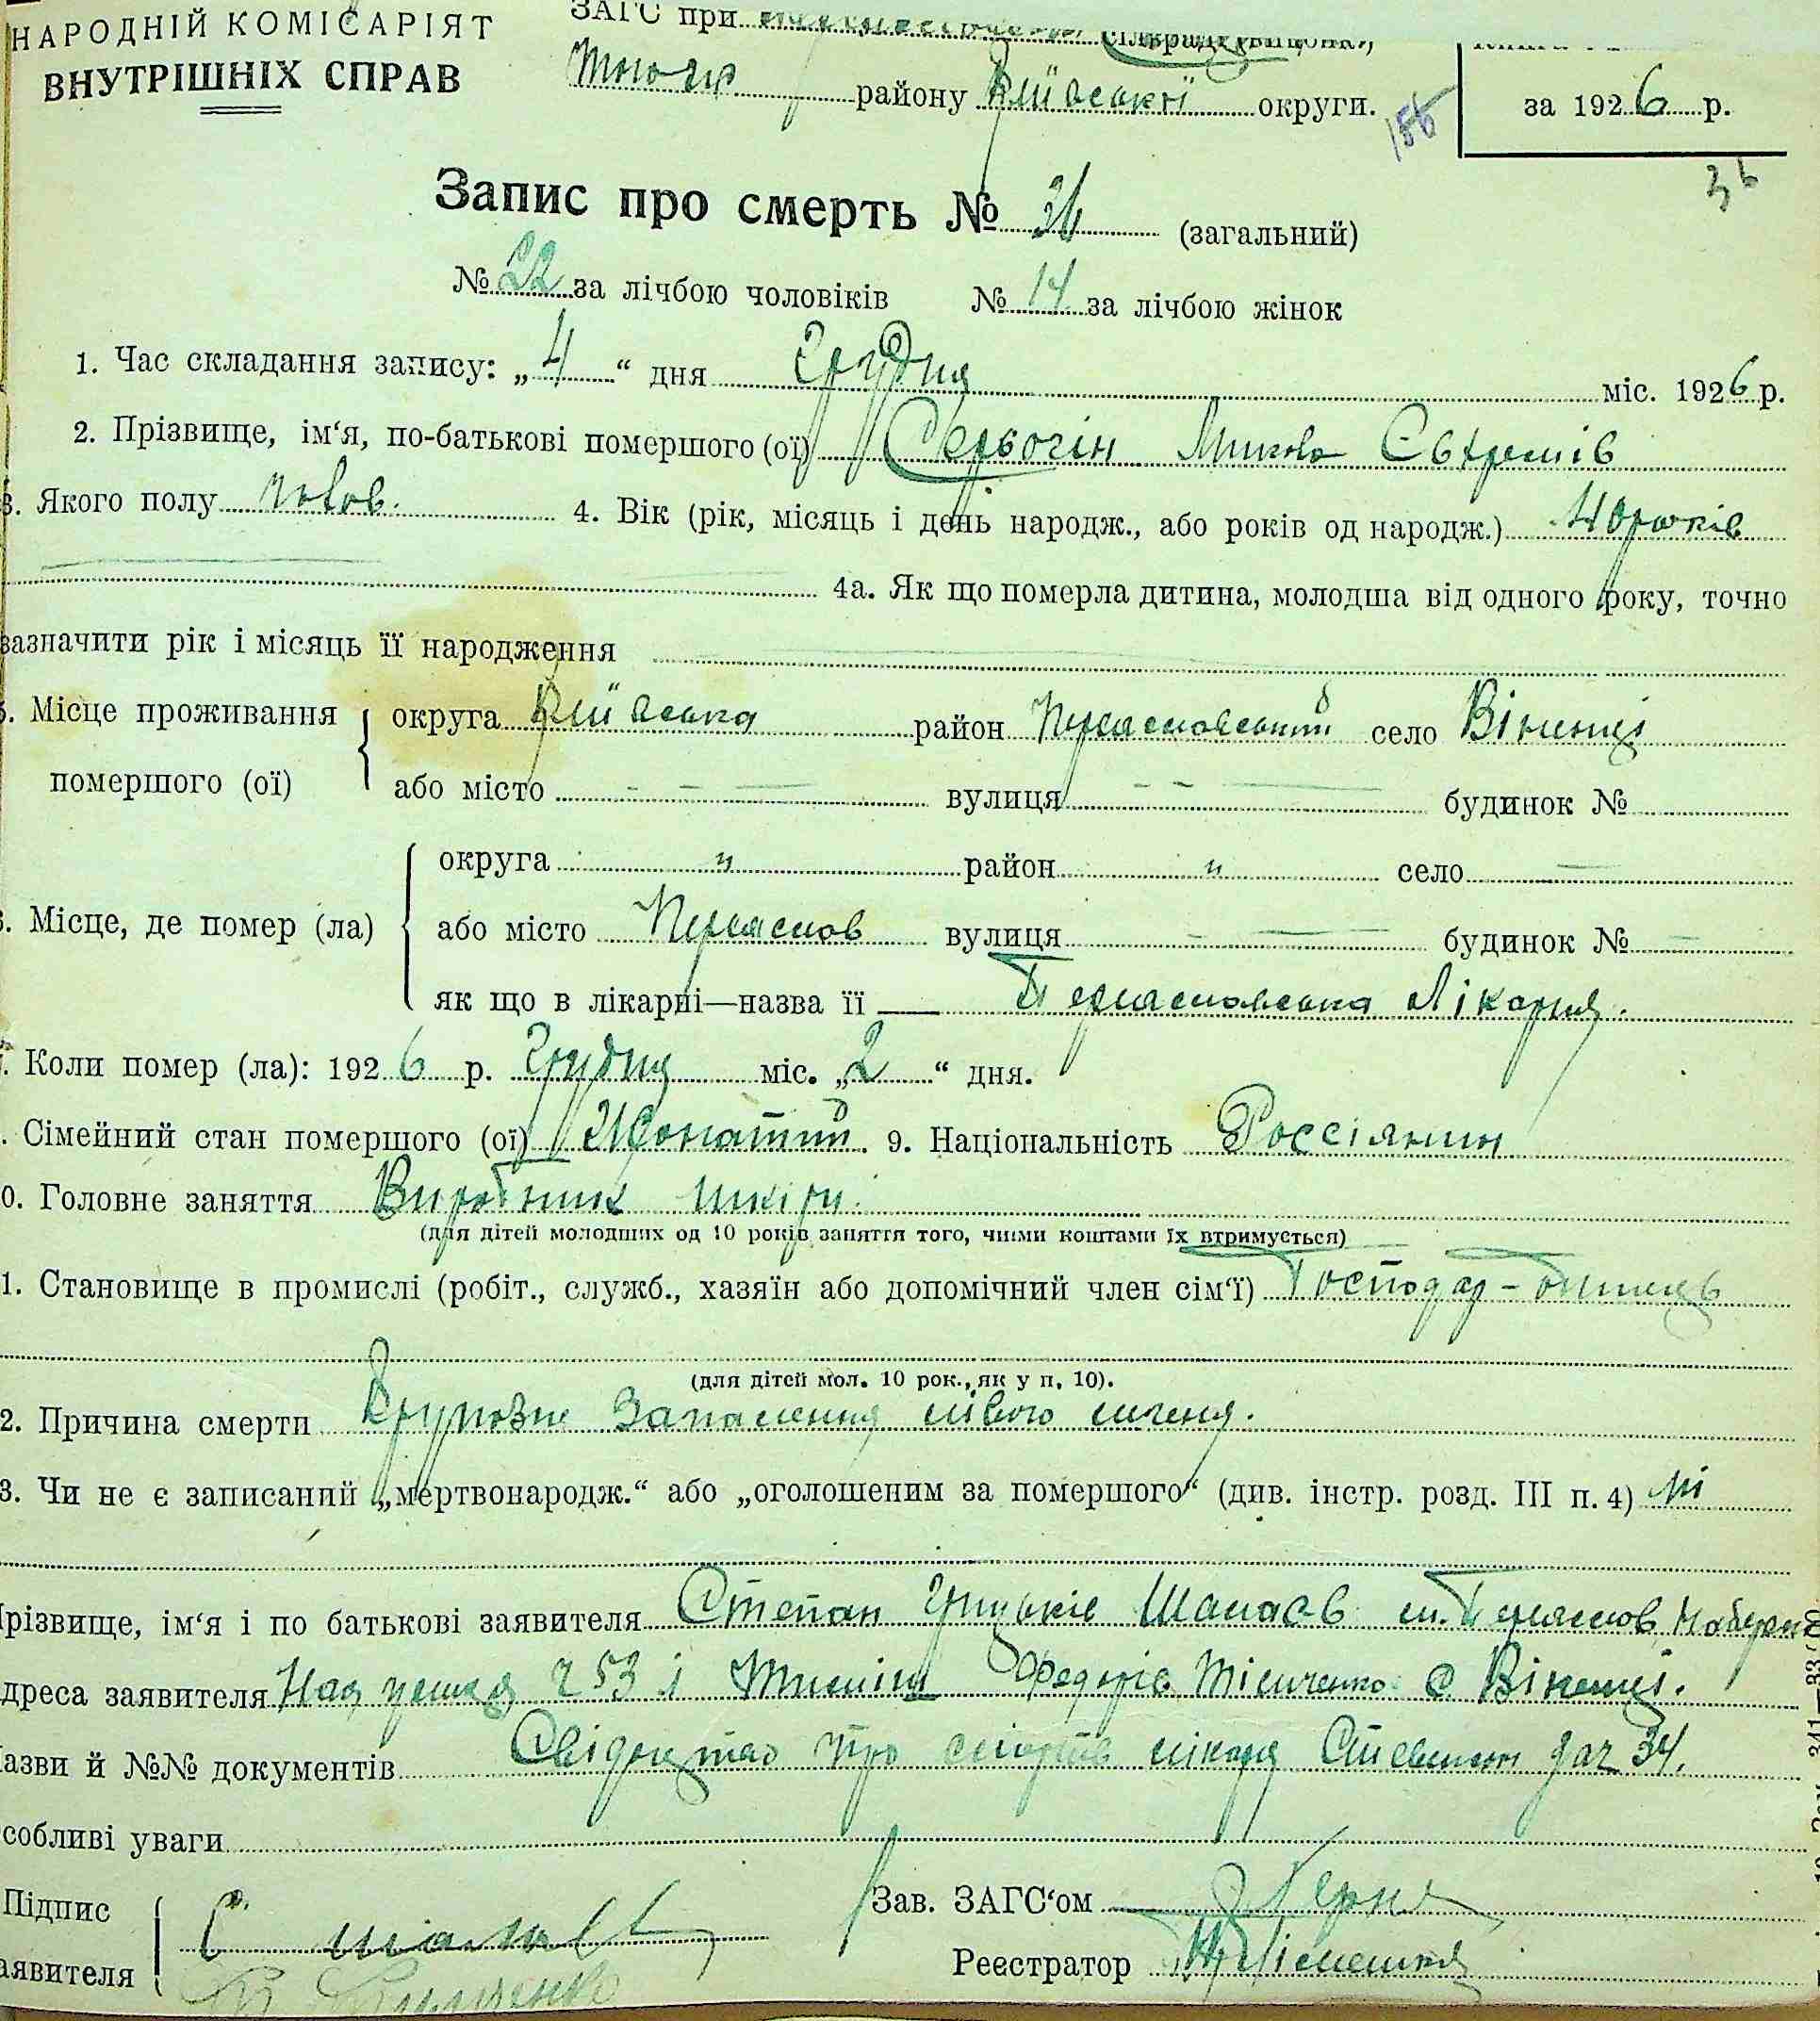 НАРОДНІЙ КОМІСАРІЯТ
ВНУТРІШНІХ СПРАВ
ЗАГС при сільраді
району Київської округи.
за 1926 р.
156
36
Запис про смерть № 36 (загальний)
№ 22 за лічбою чоловіків № 14 за лічбою жінок
1. Час складання запису: „4“ дня Грудня міс. 1926 р.
2. Прізвище, ім‘я, по-батькові помершого (ої) Серьогін Микола Євтрешів
3. Якого полу чолов. 4. Вік (рік, місяць і день народж., або років од народж.) 40 років
4а. Як що померла дитина, молодша від одного року, точно
зазначити рік і місяць її народження
5. Місце проживання помершого (ої) округа Київська район Переяславський село Віненці
або місто вулиця будинок №
6. Місце, де помер (ла) округа " район " село —
або місто Переяслов вулиця будинок № —
як що в лікарні—назва її Переясловська Лікарня.
7. Коли помер (ла): 1926 р. Грудня міс. „2“ дня.
8. Сімейний стан помершого (ої) Жонатий. 9. Національність Россіянин
10. Головне заняття Виробник шкіри.
(для дітей молодших од 10 років заняття того, чиїми коштами їх втримується)
11. Становище в промислі (робіт., служб., хазяїн або допомічний член сім‘ї) Господар -
(для дітей мол. 10 рок., як у п. 10).
12. Причина смерти Крупозне Запалення лівого легеня.
13. Чи не є записаний „мертвонародж.“ або „оголошеним за помершого“ (див. інстр. розд. III п. 4) ні
Прізвище, ім‘я і по батькові заявителя Степан Грицьків Шалаєв м. Переяслов,
Адреса заявителя ч 53 і Федорів с. Віненці.
Назви й №№ документів Свідоцтво про смерть лікаря за ч 34.
Особливі уваги
Підпис заявителя С. Шалаєв
Зав. ЗАГС‘ом
Реєстратор